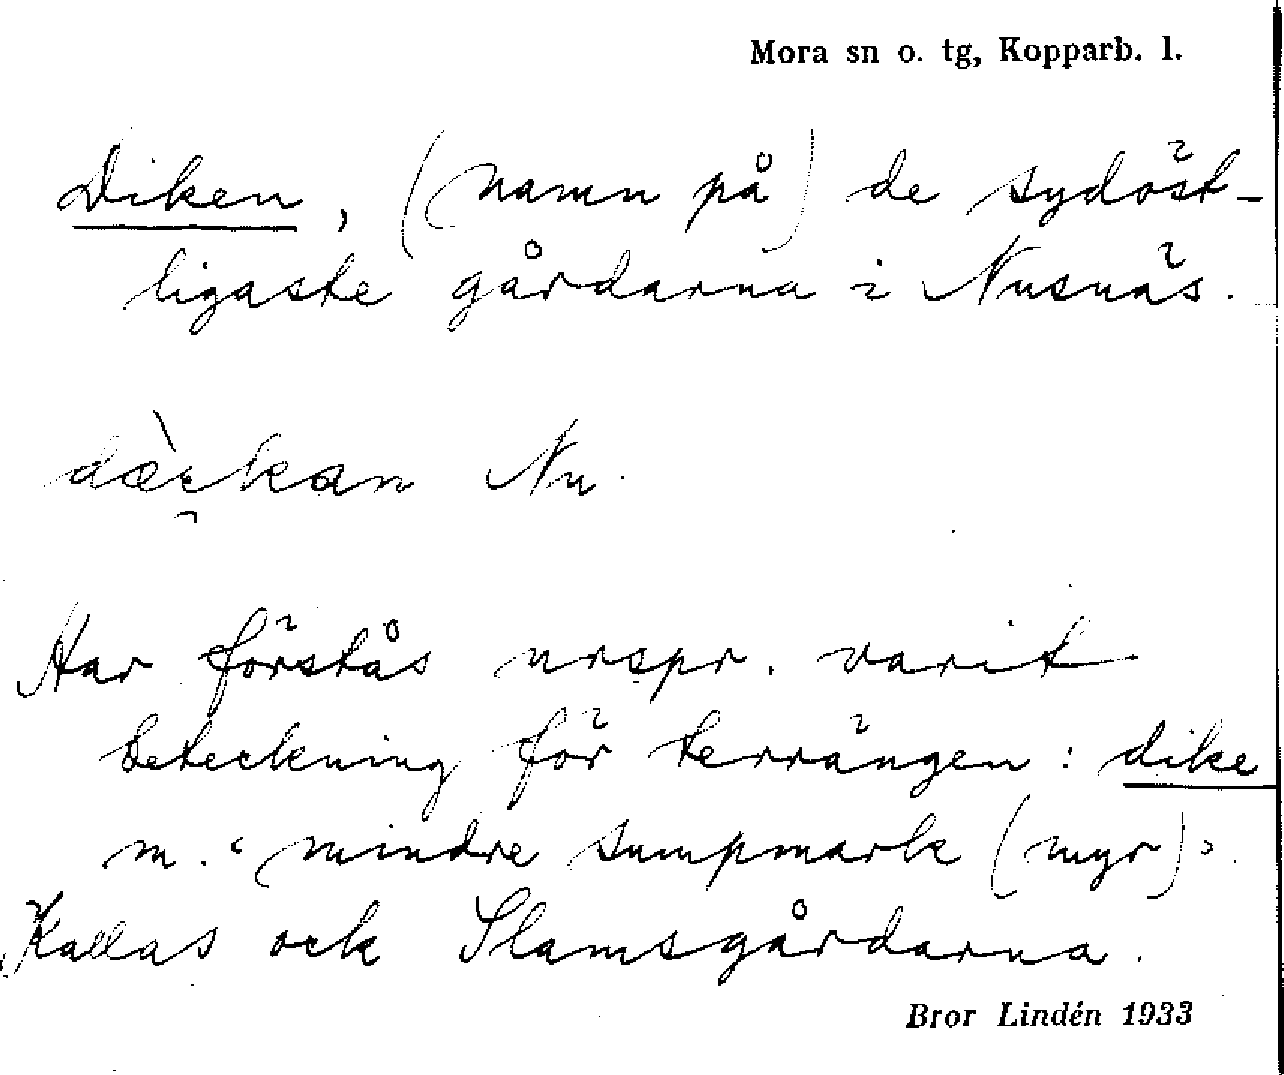 Mora sn o. tg, Kopparb. l.
Diken, (namn på) de sydöst-
ligaste gårdarna i Nusnäs.
Nu.
Har förstås urspr. varit
beteckning för terrängen: dike
m. ‘mindre sumpmark (myr)’.
Kallas ock Slamsgårdarna.
Bror Lindén 1933